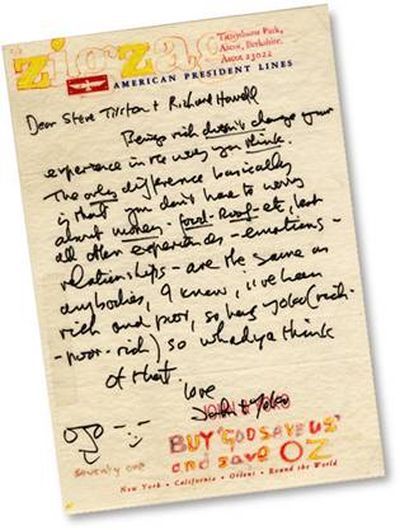 zigzag
Tittenhurst Park,
Ascot, Berkshire.
Ascot 23022
AMERICAN PRESIDENT LINES
Dear Steve Tilston + Richard Howell
Being rich doesn't change your
experience in the way you think.
The only difference basically
is that you don't have to worry
about money - food - roof - etc, but
all other experiences - emotions -
relationships - are the same as
anybodies, I know, i've been
rich and poor, so has yoko (rich-
-poor-rich) so whadya think
of that.
love
John + Yoko
BUY 'GOD SAVE US'
and save OZ
seventy one
New York • California • Orient • Round the World